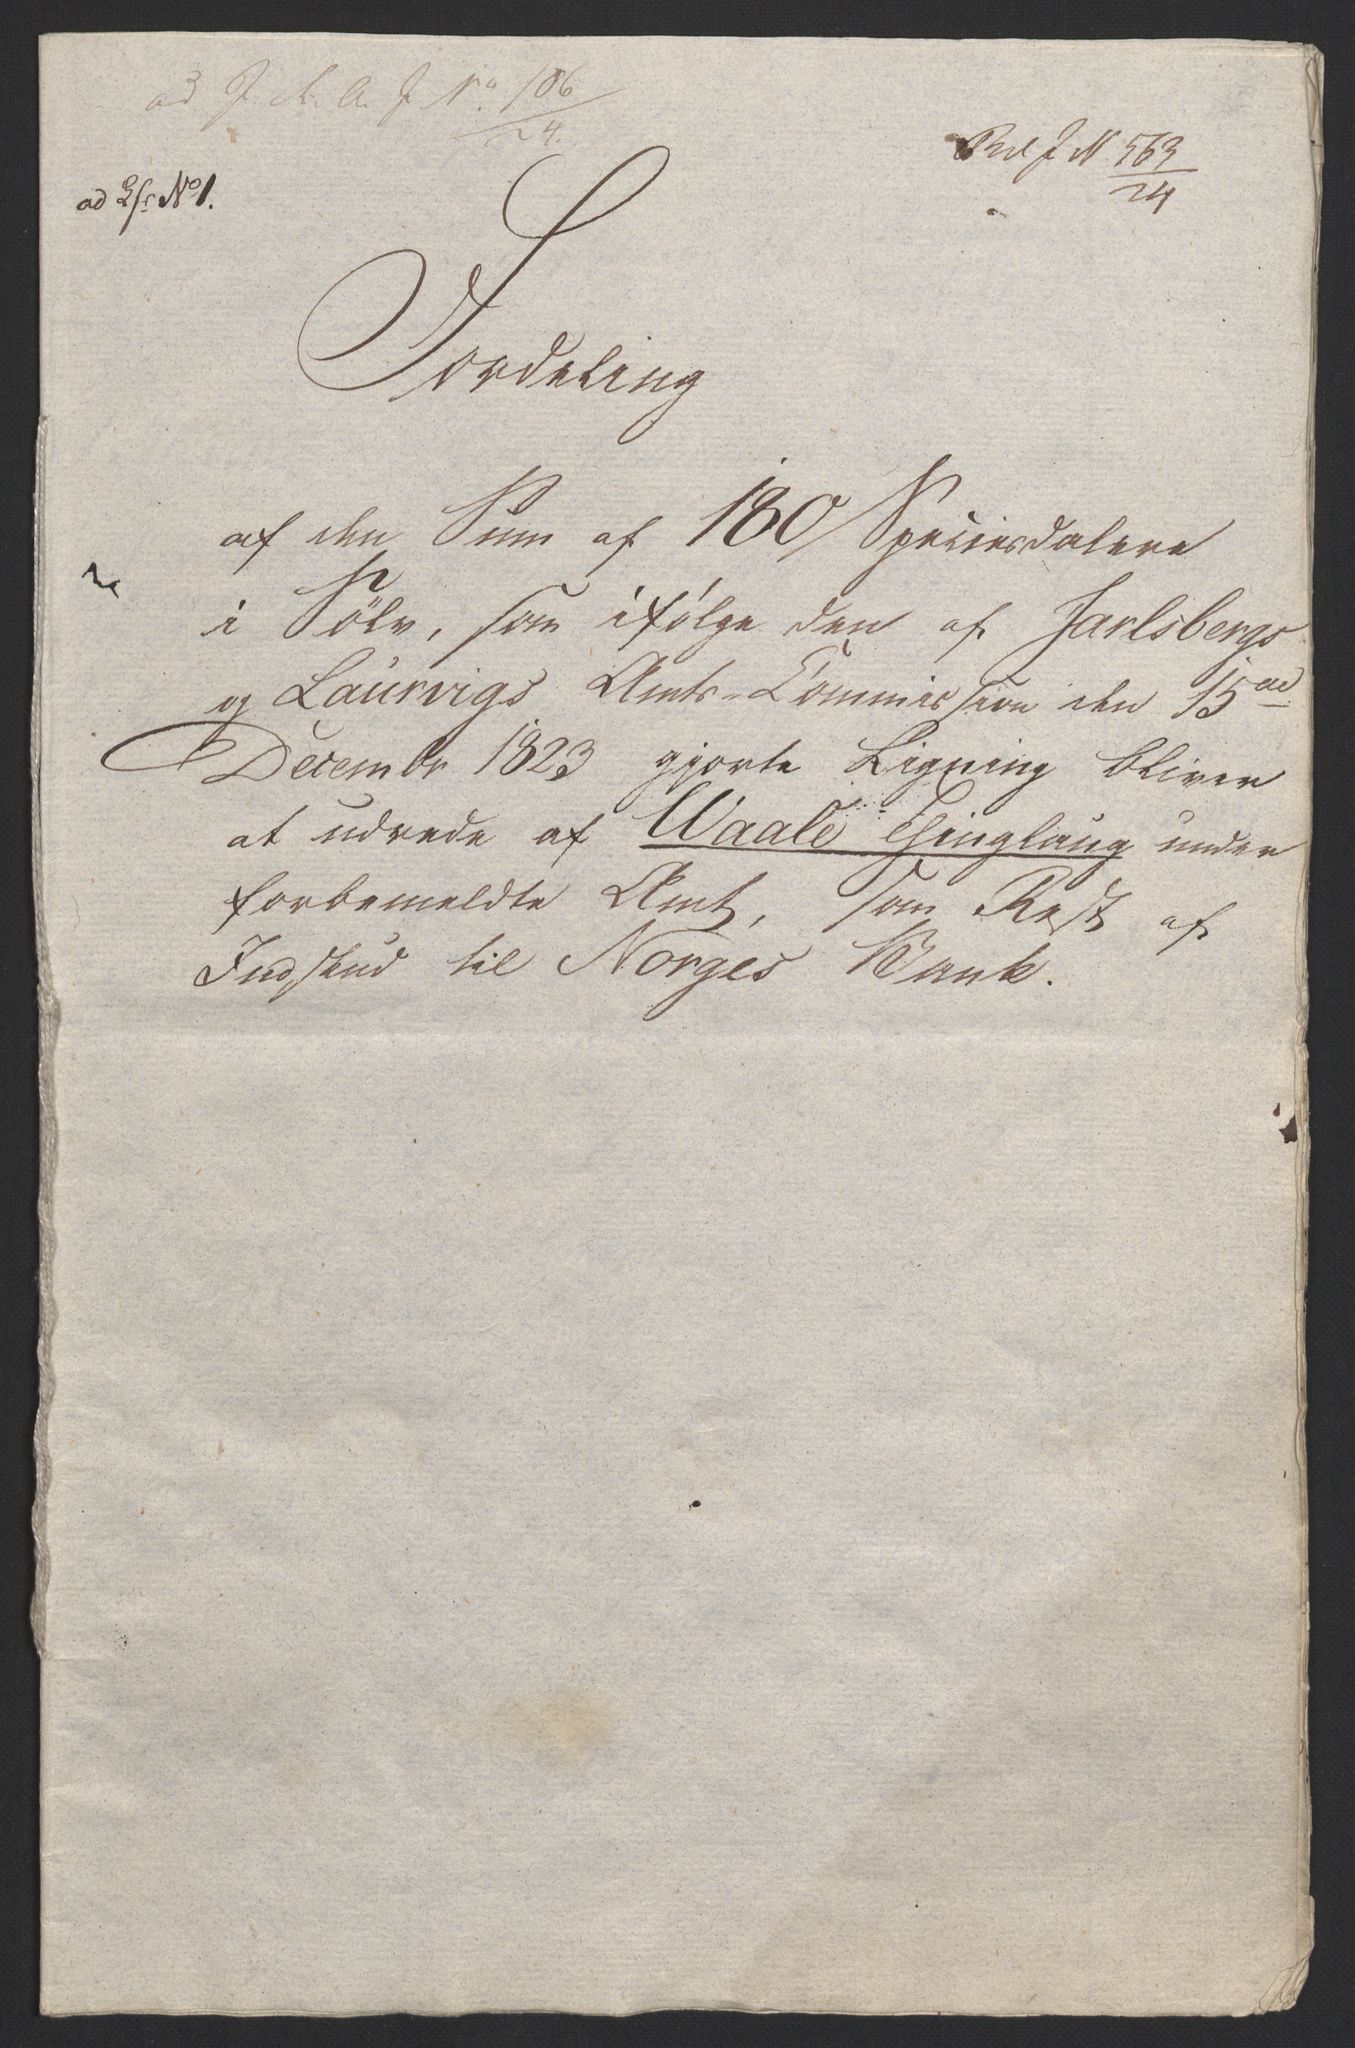 ad J. & A. J. No. 106
24.
ad Lſr No 1.
Rd J N 563
24
Fordeling
af den Sum af 180 Speciesdalere
i Sölv, som ifölge den af Jarlsbergs
og Laurvigs Amts-Commission den 15de
December 1823 gjorte Ligning bliver
at udrede af Waale Thinglaug under
forbemeldte Amt, som Rest af
Indskud til Norges Bank.